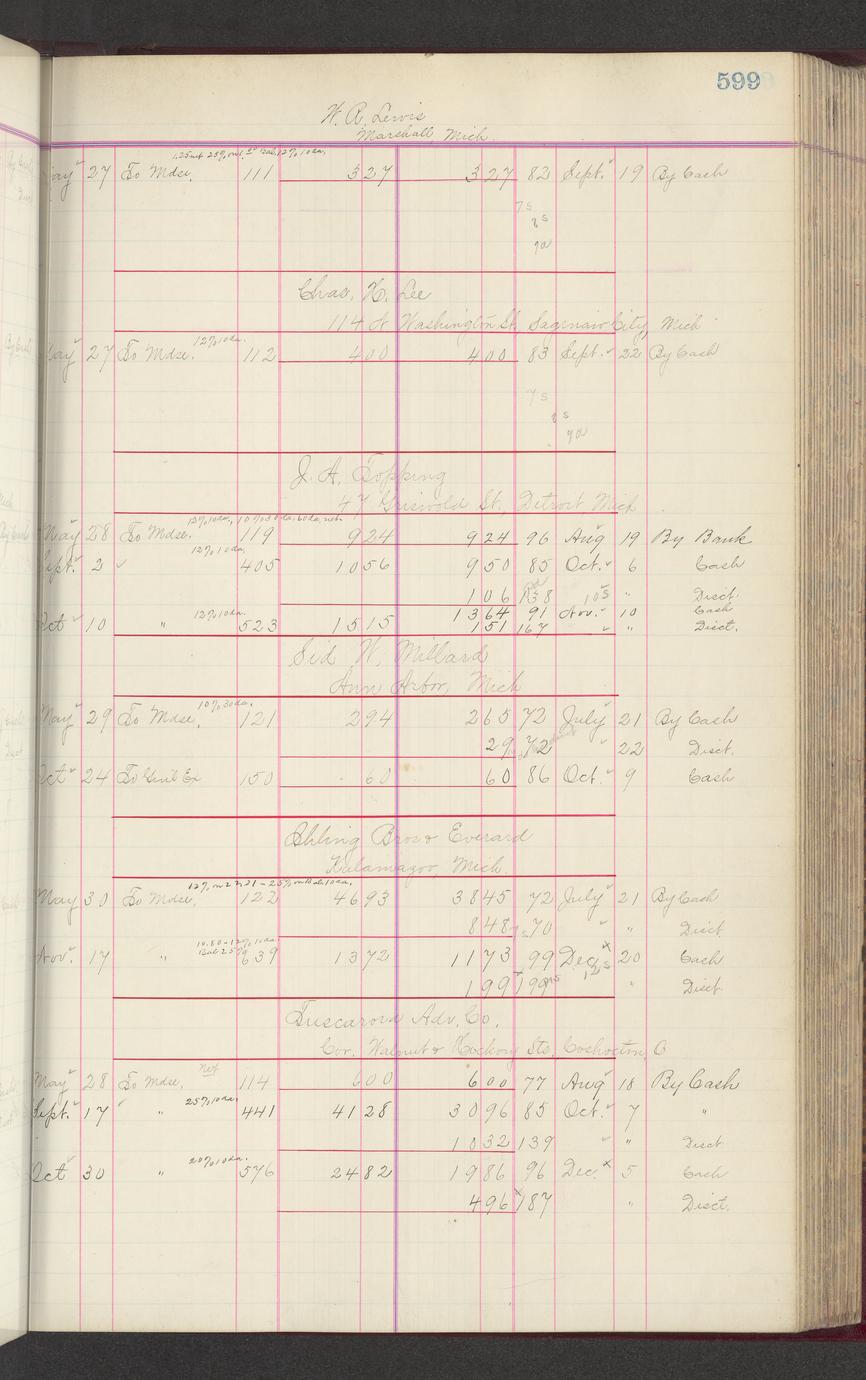 599
W. R. Lewis
Marshall Mich.
1.25 net 25% on 1.50 Bal. 12% 10 da.
May 27 To Mdse. 111 3 27 3 27 82 Sept. 19 By Cash
75
85
90
Chas. H. Lee
114 N Washington St. Saginaw City, Mich
12% 10 da.
May 27 To Mdse. 112 4 00 4 00 83 Sept. 22 By Cash
75
85
90
J. A. Topping
47 Griswold St. Detroit Mich
12% 10 da., 10% 30 da. 60 da. net.
May 28 To Mdse. 119 9 24 9 24 96 Aug 19 By Bank
12% 10 da.
Sept. 2 " 405 10 56 9 50 85 Oct. 6 Cash
1 06 138 105 " Disct.
12% 10 da.
13 64 91 Nov. 10 Cash
Oct 10 " 523 15 15 1 51 167 " " Disct.
Sid W. Millard
Ann Arbor, Mich
10% 30 da.
May 29 To Mdse. 121 2 94 2 65 72 July 21 By Cash
29 72 " 22 Disct.
Oct 24 To Genl Ex 150 60 60 86 Oct. 9 Cash
Ihling Bros & Everard
Kalamazoo, Mich.
May 30 To Mdse. 122 46 93 38 45 72 July 21 By Cash
8 48 70 " " Disct
10.80 - 12% 10 da.
Bal 25%
Nov. 17 " 639 13 72 11 73 99 Dec. x 20 Cash
1 99 199 125 " Disct
Tuscarora Adv. Co.
Cor. Walnut & Hickory Sts. Coshocton, O
net
May 28 To Mdse. 114 6 00 6 00 77 Aug 18 By Cash
25% 10 da.
Sept. 17 " 441 41 28 30 96 85 Oct. 7 "
10 32 139 " " Disct
20% 10 da.
Oct 30 " 576 24 82 19 86 96 Dec. x 5 Cash
4 96 x 187 " Disct.